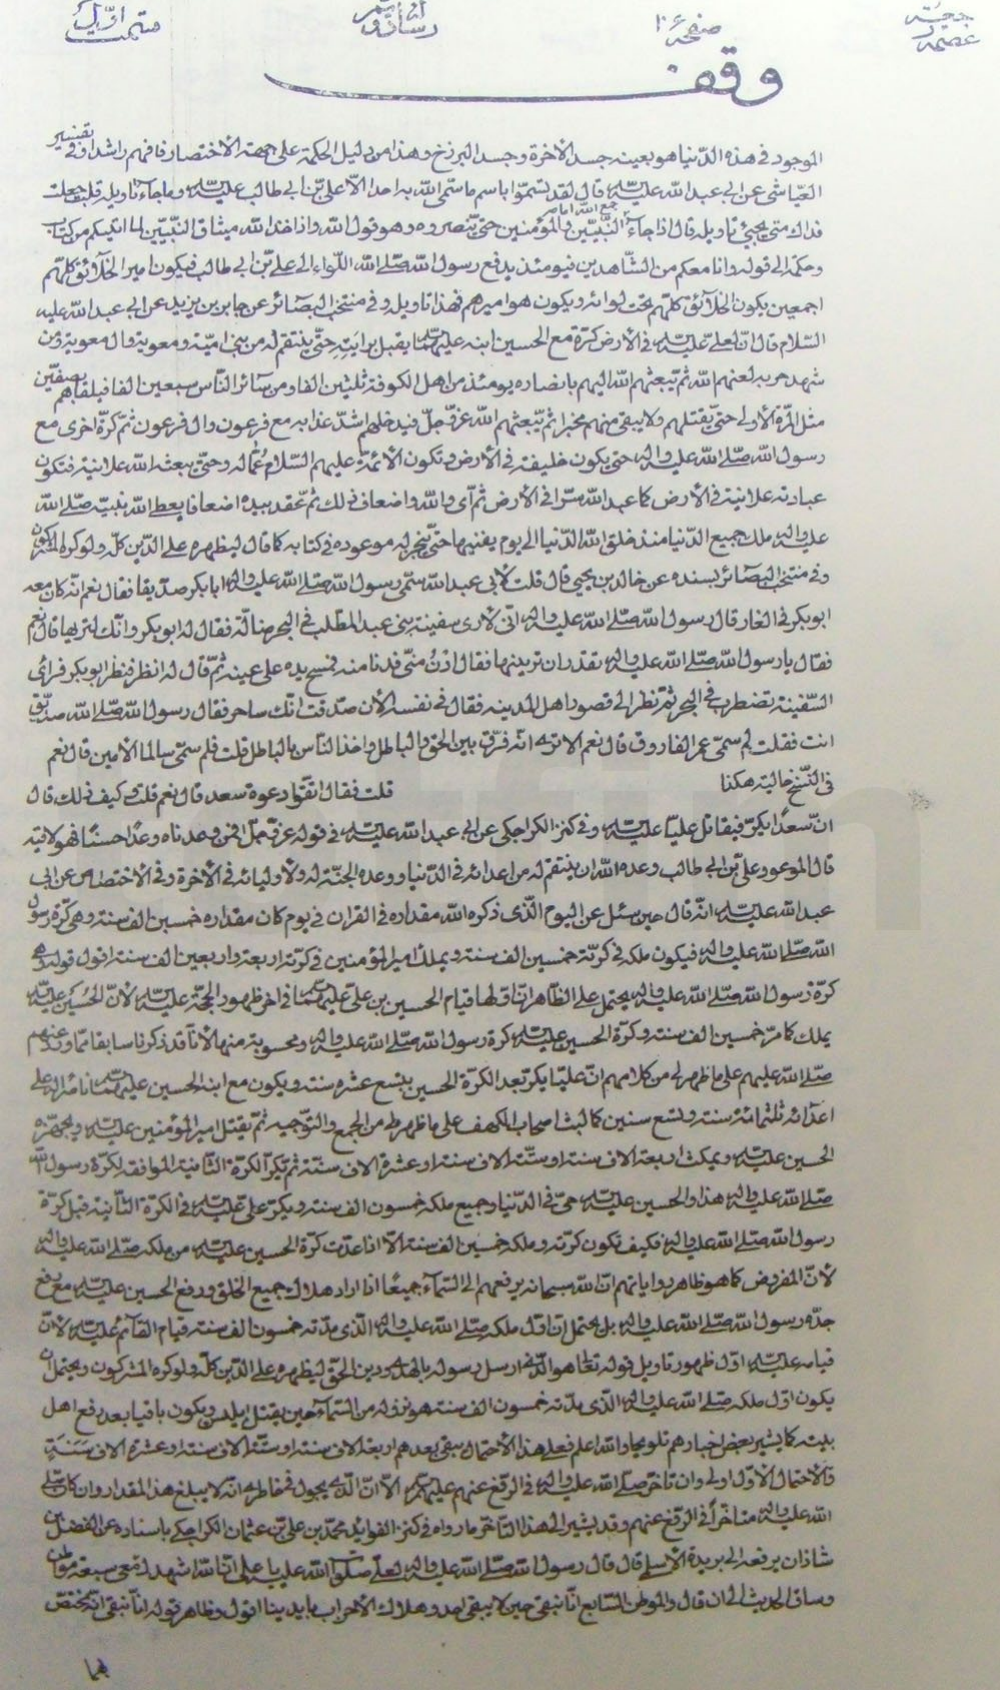 صفحه
وقف
الموجود فى هذه الدّنيا هو بعينه جسد الاخرة وجسد البرزخ وهذا من دليل الحكمة على جهة الاختصار فافهم راشدا وفى تفسير
العيّاشى عن ابى عبد الله عليه السلام قال لقد تسمّوا باسم ما سمّى الله به احدا الّا علىّ بن ابى طالب عليه السلام وما جاء تاويله قلت جعلت
فداك متى يجيئ تاويله قال اذا جاء جمع الله امامه النّبيّين والمؤمنين حتى ينصروه وهو قول الله واذ اخذ الله ميثاق النّبيّين لما اتيتكم من كتاب
وحكمة الى قوله وانا معكم من الشّاهدين فيومئذ يدفع رسول الله صلّى الله اللّواء الى علىّ بن ابى طالب فيكون امير الخلائق كلّهم
اجمعين يكون الخلائق كلّهم تحت لوائه ويكون هو اميرهم فهذا تاويله وفى منتخب البصائر عن جابر بن يزيد عن ابى عبد الله عليه
السّلام قال انّ لعلىّ عليه السلام فى الارض كرّة مع الحسين ابنه عليهما السلام يقبل برايته حتّى ينتقم له من بنى اميّة ومعوية وال معوية ومن
شهد حربه لعنهم الله ثمّ يبعثهم الله اليهم بانصاره يومئذ من اهل الكوفة ثلثين الفا ومن سائر النّاس سبعين الفا فيلقاهم بصفّين
مثل المرّة الاولى حتّى يقتلهم ولا يبقى منهم مخبرا ثمّ يبعثهم الله عزّ وجلّ فيدخلهم اشدّ عذابه مع فرعون وال فرعون ثمّ كرّة اخرى مع
رسول الله صلّى الله عليه واله حتى يكون خليفة فى الارض وتكون الائمّة عليهم السّلام عمّاله وحتّى يبعثه الله علانية فتكون
عبادته علانية فى الارض كما عبد الله سرّا فى الارض ثمّ اى والله واضعاف ذلك ثم عقد بيده اضعافا يعطى الله نبيّه صلّى الله
عليه واله ملك جميع الدّنيا منذ خلق الله الدّنيا الى يوم يفنيها حتّى ينجز له موعوده فى كتابه كما قال ليظهره على الدّين كلّه ولو كره المشركون
وفى منتخب البصائر بسنده عن خالد بن يحيى قال قلت لابى عبد الله سمّى رسول الله صلّى الله عليه واله ابا بكر صدّيقا فقال نعم انّه كان معه
ابو بكر فى الغار قال رسول الله صلّى الله عليه واله انّى لارى سفينة بنى عبد المطّلب فى البحر ضالّة فقال له ابو بكر وانّك لتريها قال نعم
فقال يا رسول الله صلّى الله عليه واله تقدر ان ترينيها فقال ادن منّى فدنا منه فمسح يده على عينيه ثمّ قال له انظر فنظر ابو بكر فرأى
السّفينة تضطرب فى البحر ثمّ نظر الى قصور اهل المدينه فقال فى نفسه الان صدّقت انّك ساحر فقال رسول الله صلّى الله صدّيق
انت فقلت لم سمّى عمر الفاروق قال نعم الا ترى انّه فرّق بين الحقّ والباطل واخذ النّاس بالباطل قلت فلم سمّى سالما الامين قال نعم
فى النّسخ خالية هكذا قلت فقال اتّقوا دعوة سعد قال نعم قلت وكيف ذلك قال
انّ سعدا يكرّ فيقاتل عليّا عليه السلام وفى كنز الكراجكى عن ابى عبد الله عليه السلام فى قوله عزّ وجلّ افمن وعدناه وعدا حسنا فهو لاقيه
قال الموعود علىّ بن ابى طالب وعده الله ان ينتقم له من اعدائه فى الدّنيا ووعده الجنّة له ولاوليائه فى الاخرة وفى الاختصاص عن ابى
عبد الله عليه السلام انّه قال حين سئل عن اليوم الّذى ذكره الله مقداره فى القران فى يوم كان مقداره خمسين الف سنة وهى كرّة رسول
الله صلّى الله عليه واله فيكون ملكه فى كرّته خمسين الف سنة ويملك امير المؤمنين فى كرّته اربعة واربعين الف سنة اقول قوله وهى
كرّة رسول الله صلّى الله عليه واله يحتمل على الظّاهر انّ اوّلها قيام الحسين بن على عليهما السلام فى اخر ظهور الحجّة عليه السلام لانّ الحسين عليه السلام
يملك كما مرّ خمسين الف سنة وكرّة الحسين عليه السلام كرّة رسول الله صلّى الله عليه واله ومحسوبة منها لانّا قد ذكرنا سابقا ممّا ورد عنهم
صلّى الله عليهم على ما ظهر لى من كلامهم انّ عليّا يكرّ بعد الكرّة الحسين بتسع عشره سنة ويكون مع ابنه الحسين عليهما السلام على
اعدائه ثلثمائة سنة وتسع سنين كما لبث اصحاب الكهف على ما ظهر لى من الجمع والتّوجيه ثمّ يقتل امير المؤمنين عليه السلام ويجهّزه
الحسين عليه السلام ويمكث اربعة الاف سنة او ستّة الاف سنة او عشرة الاف سنة ثم يكرّ الكرّة الثّانية الموافقة لكرّة رسول الله
صلّى الله عليه واله هذا والحسين عليه السلام حىّ فى الدّنيا وجميع ملكه خمسون الف سنة ويكرّ علىّ عليه السلام فى الكرّة الثّانية قبل كرّة
رسول الله صلّى الله عليه واله فكيف تكون كرّته وملكه خمسين الف سنة الّا اذا عدّت كرّة الحسين عليه السلام من ملكه صلّى الله عليه واله
لانّ المفروض كما هو ظاهر رواياتهم انّ الله سبحانه يرفعهم الى السّماء جميعا اذا اراد هلاك جميع الخلق ورفع الحسين عليه السلام مع رفع
جدّه رسول الله صلّى الله عليه واله بل يحتمل انّ اوّل ملكه صلّى الله عليه واله الّذى مدّته خمسون الف سنة قيام القائم عليه السلام لانّ
قيامه عليه السلام اوّل ظهور تاويل قوله تعالى هو الّذى ارسل رسوله بالهدى ودين الحقّ ليظهره على الدّين كلّه ولو كره المشركون ويحتمل ان
يكون اوّل ملكه صلّى الله عليه واله الّذى مدّته خمسون الف سنة هو نزوله من السّماء حين يقتل ابليس ويكون باقيا بعد رفع اهل
بيته كما يشير بعض اخبارهم تلويحا والله اعلم فعلى هذا الاحتمال يبقى بعدهم اربعة الاف سنة او ستّة الاف سنة او عشرة الاف سنة
والاحتمال الاوّل اولى وان تاخّر صلّى الله عليه واله فى الرّفع عنهم عليهم السلام الّا انّ الّذى يجول فى خاطرى انّه لا يبلغ هذا المقدار وان كان صلّى
الله عليه واله متاخّرا فى الرّفع عنهم وقد يشير الى هذا التّاخّر ما رواه فى كنز الفوائد محمّد بن على بن عثمان الكراجكى باسناده عن الفضل بن
شاذان يرفعه الى بريدة الاسلمى قال قال رسول الله صلّى الله عليه واله لعلىّ صلوات الله عليه يا على انّ الله اشهدك معى سبعة مواطن
وساق الحديث الى ان قال والموطن السّابع انّا نبقى حين لا يبقى احد وهلاك الاحزاب بايدينا اقول وظاهر قوله انّا نبقى انّه يختصّ
بهما